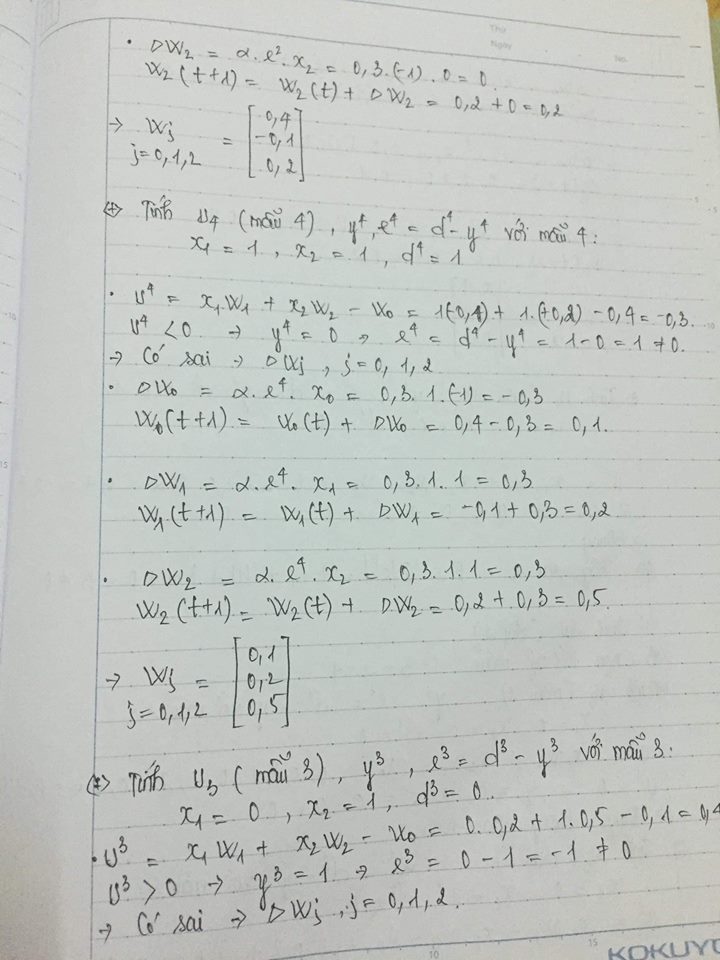 Thứ
Ngày
No.
• DW₂ = α.e².x₂ = 0,3.(-1).0 = 0.
W₂(t+1) = W₂(t) + DW₂ = 0,2 + 0 = 0,2
→ Wj = [0,4
-0,1
0,2]
j=0,1,2
(+) Tính U₄ (mẫu 4), y⁴, e⁴ = d⁴ - y⁴ với mẫu 4:
x₁ = 1, x₂ = 1, d⁴ = 1
• U⁴ = x₁W₁ + x₂W₂ - W₀ = 1(-0,1) + 1.(+0,2) - 0,4 = -0,3.
U⁴ < 0 → y⁴ = 0 → e⁴ = d⁴ - y⁴ = 1 - 0 = 1 ≠ 0.
→ Có sai → DWj, j = 0, 1, 2
• DW₀ = α.e⁴.x₀ = 0,3.1.(-1) = -0,3
W₀(t+1) = W₀(t) + DW₀ = 0,4 - 0,3 = 0,1.
• DW₁ = α.e⁴.x₁ = 0,3.1.1 = 0,3
W₁(t+1) = W₁(t) + DW₁ = -0,1 + 0,3 = 0,2
• DW₂ = α.e⁴.x₂ = 0,3.1.1 = 0,3
W₂(t+1) = W₂(t) + DW₂ = 0,2 + 0,3 = 0,5.
→ Wj = [0,1
0,2
0,5]
j=0,1,2
(+) Tính U₃ (mẫu 3), y³, e³ = d³ - y³ với mẫu 3:
x₁ = 0, x₂ = 1, d³ = 0.
• U³ = x₁W₁ + x₂W₂ - W₀ = 0.0,2 + 1.0,5 - 0,1 = 0,4
U³ > 0 → y³ = 1 → e³ = 0 - 1 = -1 ≠ 0
→ Có sai → DWj, j = 0, 1, 2.
10
15
KOKUYO